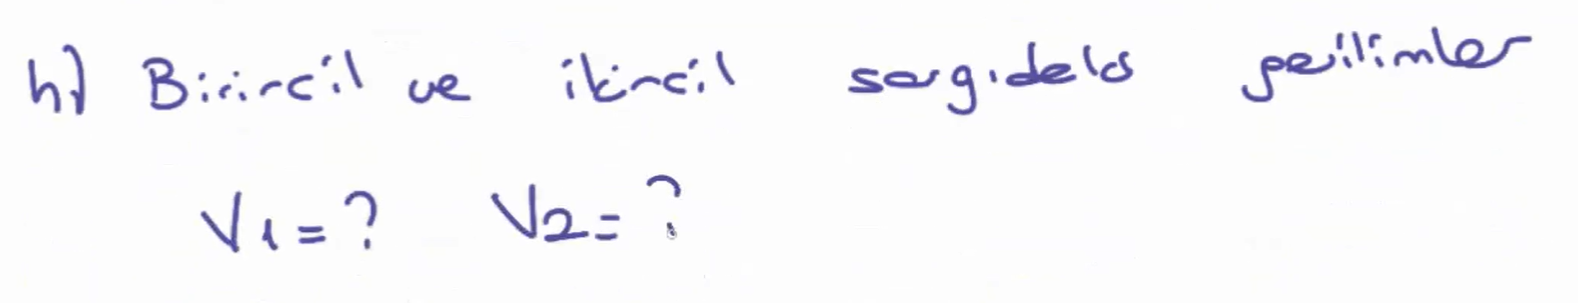 h) Birincil ve ikincil sargıdaki gerilimler
V1=? V2=?